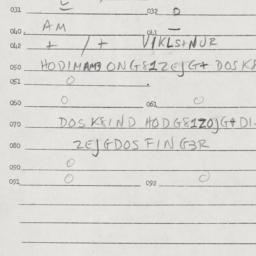 031 032 0
040. AM 041
042 + / + V/KLSINUR
050 HODIMAND ONG81ZEJG+ DOSK8
051 0
060 0 061 0
070 DOSK8IND HODG81ZOJG+DI
080 ZEJGDOSFINGER
090 0
091 0 092 0